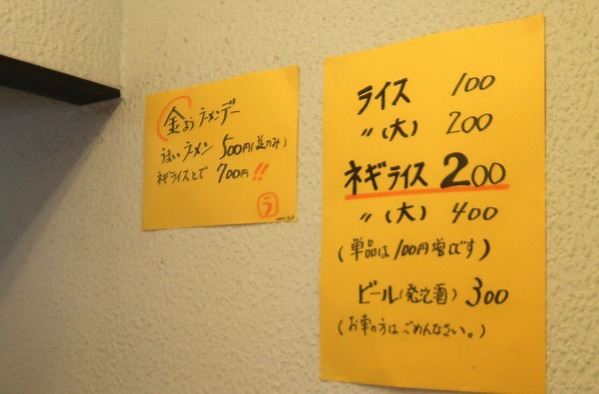 金曜ラーメンデー
うまいラーメン 500円(並のみ)
ネギライスとで 700円!!
ラ
ライス 100
〃(大) 200
ネギライス 200
〃(大) 400
(単品は100円増しです)
ビール(発泡酒) 300
(お車の方はごめんなさい。)